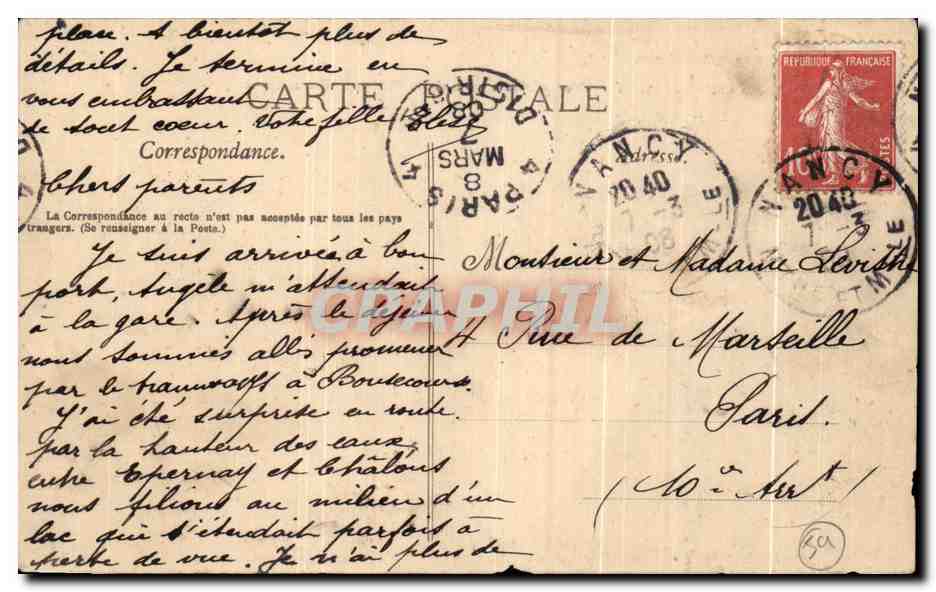 place. A bientôt plus de
détails. Je termine en
vous embrassant
de tout coeur. Votre fille
CARTE POSTALE
Correspondance.
Adresse.
Chers parents
La Correspondance au recto n'est pas acceptée par tous les pays
trangers. (Se renseigner à la Poste.)
Je suis arrivée à bon
port, Angèle m'attendait
à la gare. Après le déjeuner
nous sommes allés promener
par le tramways à Bonsecours.
J'ai été surprise en route.
par la hauteur des eaux,
entre Epernay et Châlons
nous filions au milieu d'un
lac qui s'étendait parfois à
perte de vue. Je n'ai plus de
Monsieur et Madame
4 Rue de Marseille
Paris.
(10e Arrt)
REPUBLIQUE FRANÇAISE
10 POSTES
PARIS 4 DISTRIB
8
MARS
7
08
NANCY
20 40
7 - 3
08
M-LLE
NANCY
20 40
7 - 3
ET M-LLE
CRAPHIL
59